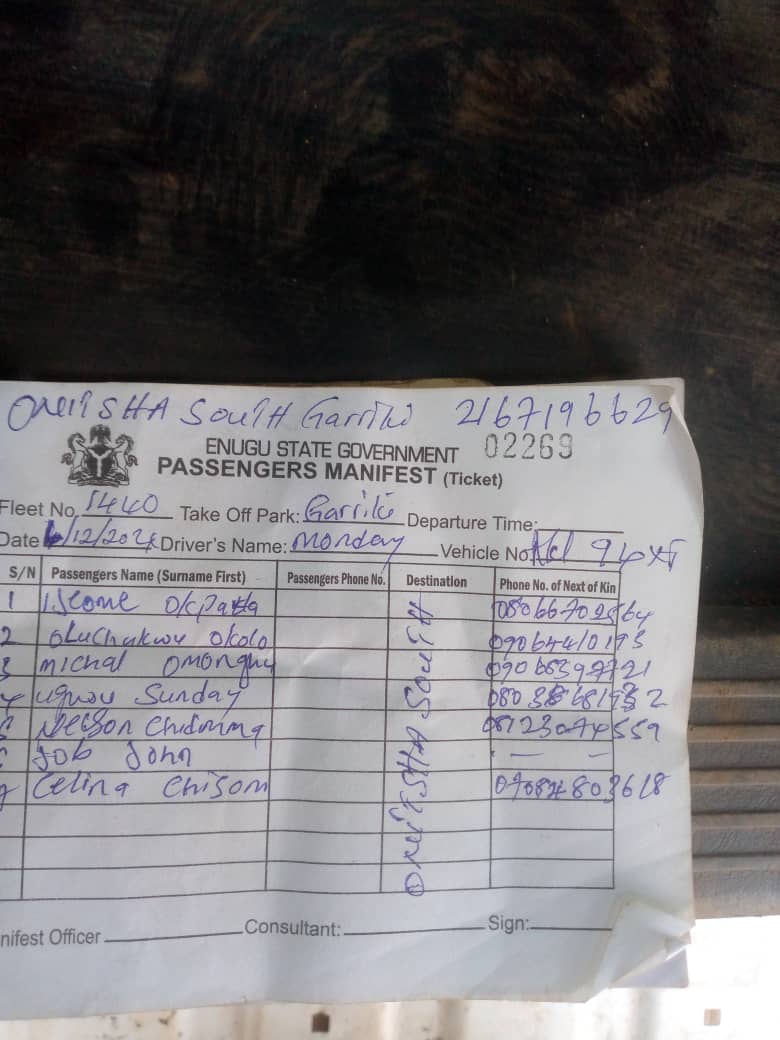 ONITSHA SOUTH Garriki 2167196629
ENUGU STATE GOVERNMENT 02269
PASSENGERS MANIFEST (Ticket)
Fleet No. 1440 Take Off Park: Garriki Departure Time:
Date /12/202 Driver's Name: Monday Vehicle No 94XT
S/N Passengers Name (Surname First) Passengers Phone No. Destination Phone No. of Next of Kin
1 Okpara
2 Oluchukwu Okolo 09064410193
3 michal
ugwu Sunday
Nelson Chidmma 08123074559
Job John - -
Celina Chisom
ONITSHA SOUTH
nifest Officer Consultant: Sign: